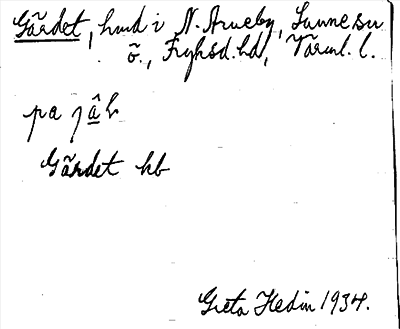 Gärdet, hmd i N. Arneby, Sunne su
ö., Fryksd. hd, Värml. l.
på jä̂ḷ
Gärdet hb
Greta Hedin 1934.